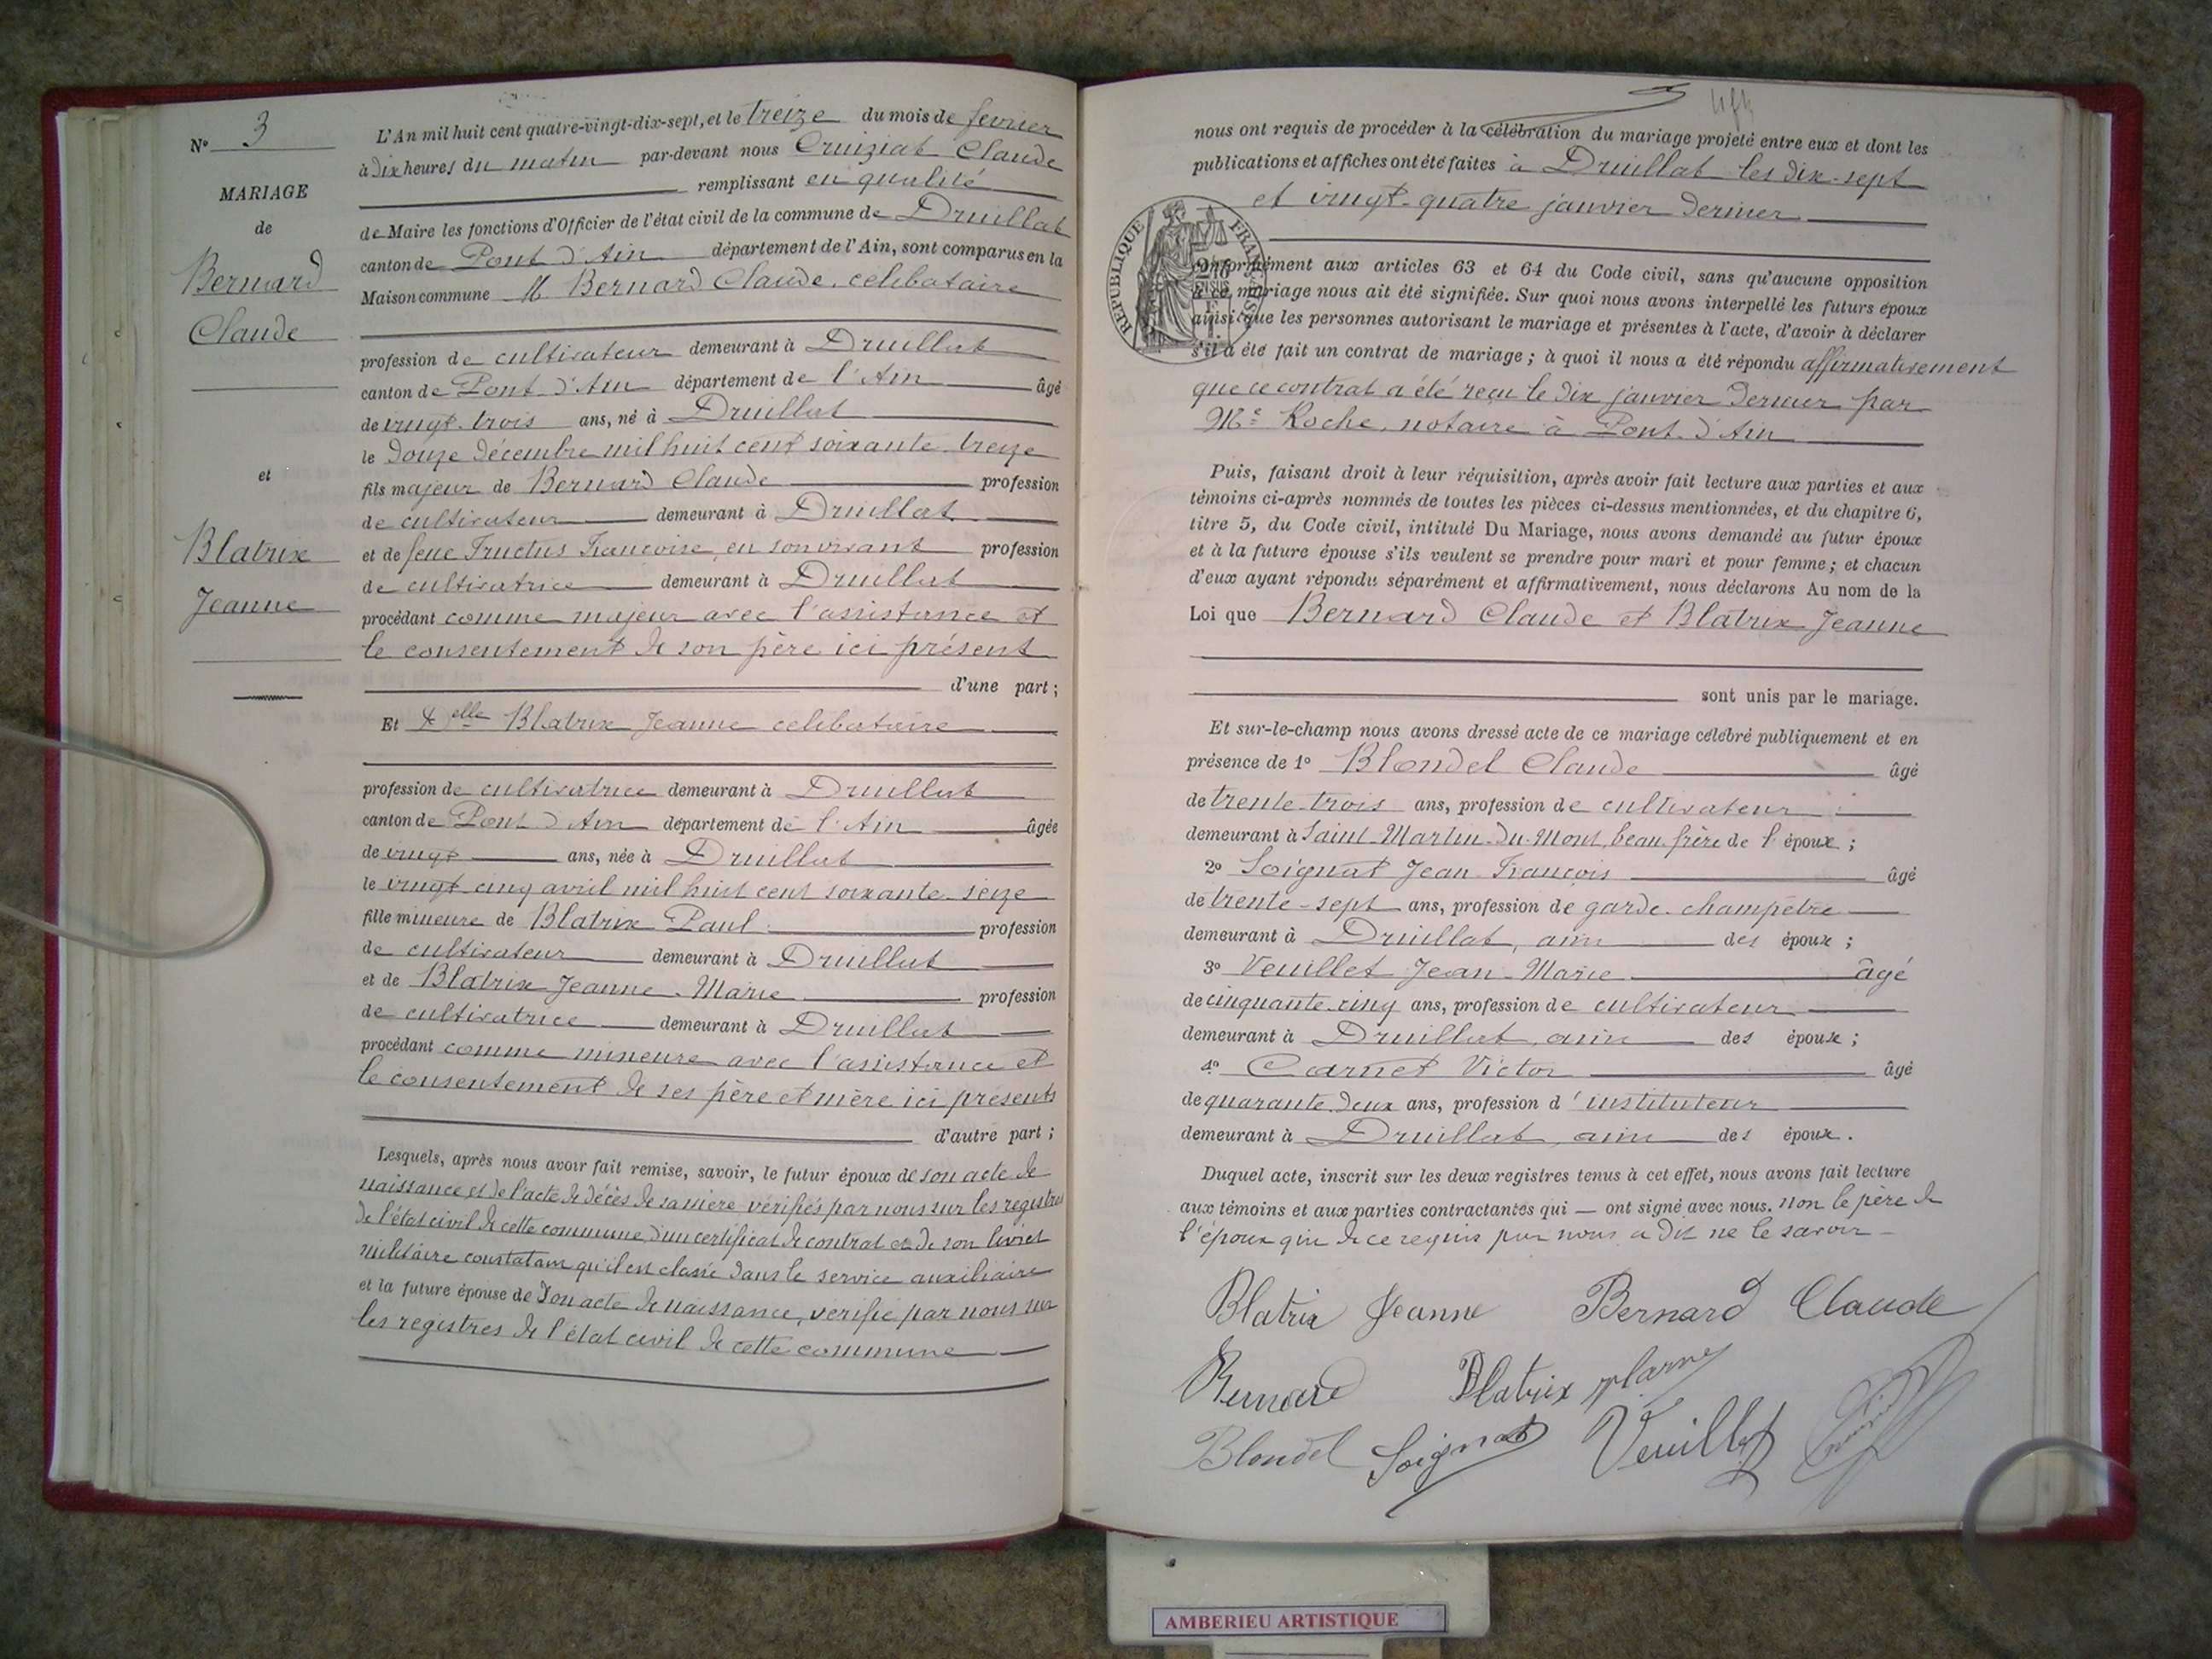 N° 3
MARIAGE
de
Bernard
Claude
et
Blatrix
Jeanne
L'An mil huit cent quatre-vingt-dix-sept, et le treize du mois de février
à dix heures du matin par-devant nous Cruiziat Claude
remplissant en qualité
de Maire les fonctions d'Officier de l'état civil de la commune de Druillat
canton de Pont d'Ain département de l'Ain, sont comparus en la
Maison commune M Bernard Claude, célibataire
profession de cultivateur demeurant à Druillat
canton de Pont d'Ain département de l'Ain âgé
de vingt-trois ans, né à Druillat
le douze décembre mil huit cent soixante-treize
fils majeur de Bernard Claude profession
de cultivateur demeurant à Druillat
et de feue Fructus Francoise, en son vivant profession
de cultivatrice demeurant à Druillat
procédant comme majeur avec l'assistance et
le consentement de son père ici présent
d'une part ;
Et Delle Blatrix Jeanne célibataire
profession de cultivatrice demeurant à Druillat
canton de Pont d'Ain département de l'Ain âgée
de vingt ans, née à Druillat
le vingt-cinq avril mil huit cent soixante-seize
fille mineure de Blatrix Paul profession
de cultivateur demeurant à Druillat
et de Blatrix Jeanne-Marie profession
de cultivatrice demeurant à Druillat
procédant comme mineure avec l'assistance et
le consentement de ses père et mère ici présents
d'autre part ;
Lesquels, après nous avoir fait remise, savoir, le futur époux de son acte de
naissance et de l'acte de décès de sa mère vérifiés par nous sur les registres
de l'état civil de cette commune, d'un certificat de contrat et de son livret
militaire constatant qu'il est classé dans le service auxiliaire
et la future épouse de son acte de naissance, vérifié par nous sur
les registres de l'état civil de cette commune
nous ont requis de procéder à la célébration du mariage projeté entre eux et dont les
publications et affiches ont été faites à Druillat les dix-sept
et vingt-quatre janvier dernier
RÉPUBLIQUE FRANÇAISE
conformément aux articles 63 et 64 du Code civil, sans qu'aucune opposition
à ce mariage nous ait été signifiée. Sur quoi nous avons interpellé les futurs époux
ainsi que les personnes autorisant le mariage et présentes à l'acte, d'avoir à déclarer
s'il a été fait un contrat de mariage ; à quoi il nous a été répondu affirmativement
que ce contrat a été reçu le dix janvier dernier par
Me Roche, notaire à Pont-d'Ain
Puis, faisant droit à leur réquisition, après avoir fait lecture aux parties et aux
témoins ci-après nommés de toutes les pièces ci-dessus mentionnées, et du chapitre 6,
titre 5, du Code civil, intitulé Du Mariage, nous avons demandé au futur époux
et à la future épouse s'ils veulent se prendre pour mari et pour femme ; et chacun
d'eux ayant répondu séparément et affirmativement, nous déclarons Au nom de la
Loi que Bernard Claude et Blatrix Jeanne
sont unis par le mariage.
Et sur-le-champ nous avons dressé acte de ce mariage célébré publiquement et en
présence de 1° Blondel Claude âgé
de trente-trois ans, profession de cultivateur
demeurant à Saint-Martin-du-Mont, beau-frère de l'époux ;
2° Soignat Jean-François âgé
de trente-sept ans, profession de garde-champêtre
demeurant à Druillat, ami des époux ;
3° Veuillet Jean-Marie âgé
de cinquante-cinq ans, profession de cultivateur
demeurant à Druillat, ami des époux ;
4° Carnet Victor âgé
de quarante-deux ans, profession d'instituteur
demeurant à Druillat, ami des époux.
Duquel acte, inscrit sur les deux registres tenus à cet effet, nous avons fait lecture
aux témoins et aux parties contractantes qui — ont signé avec nous. non le père de
l'époux qui de ce requis par nous a dit ne le savoir
Blatrix Jeanne Bernard Claude
Bernard Blatrix
Blondel Soignat Veuillet
AMBERIEU ARTISTIQUE